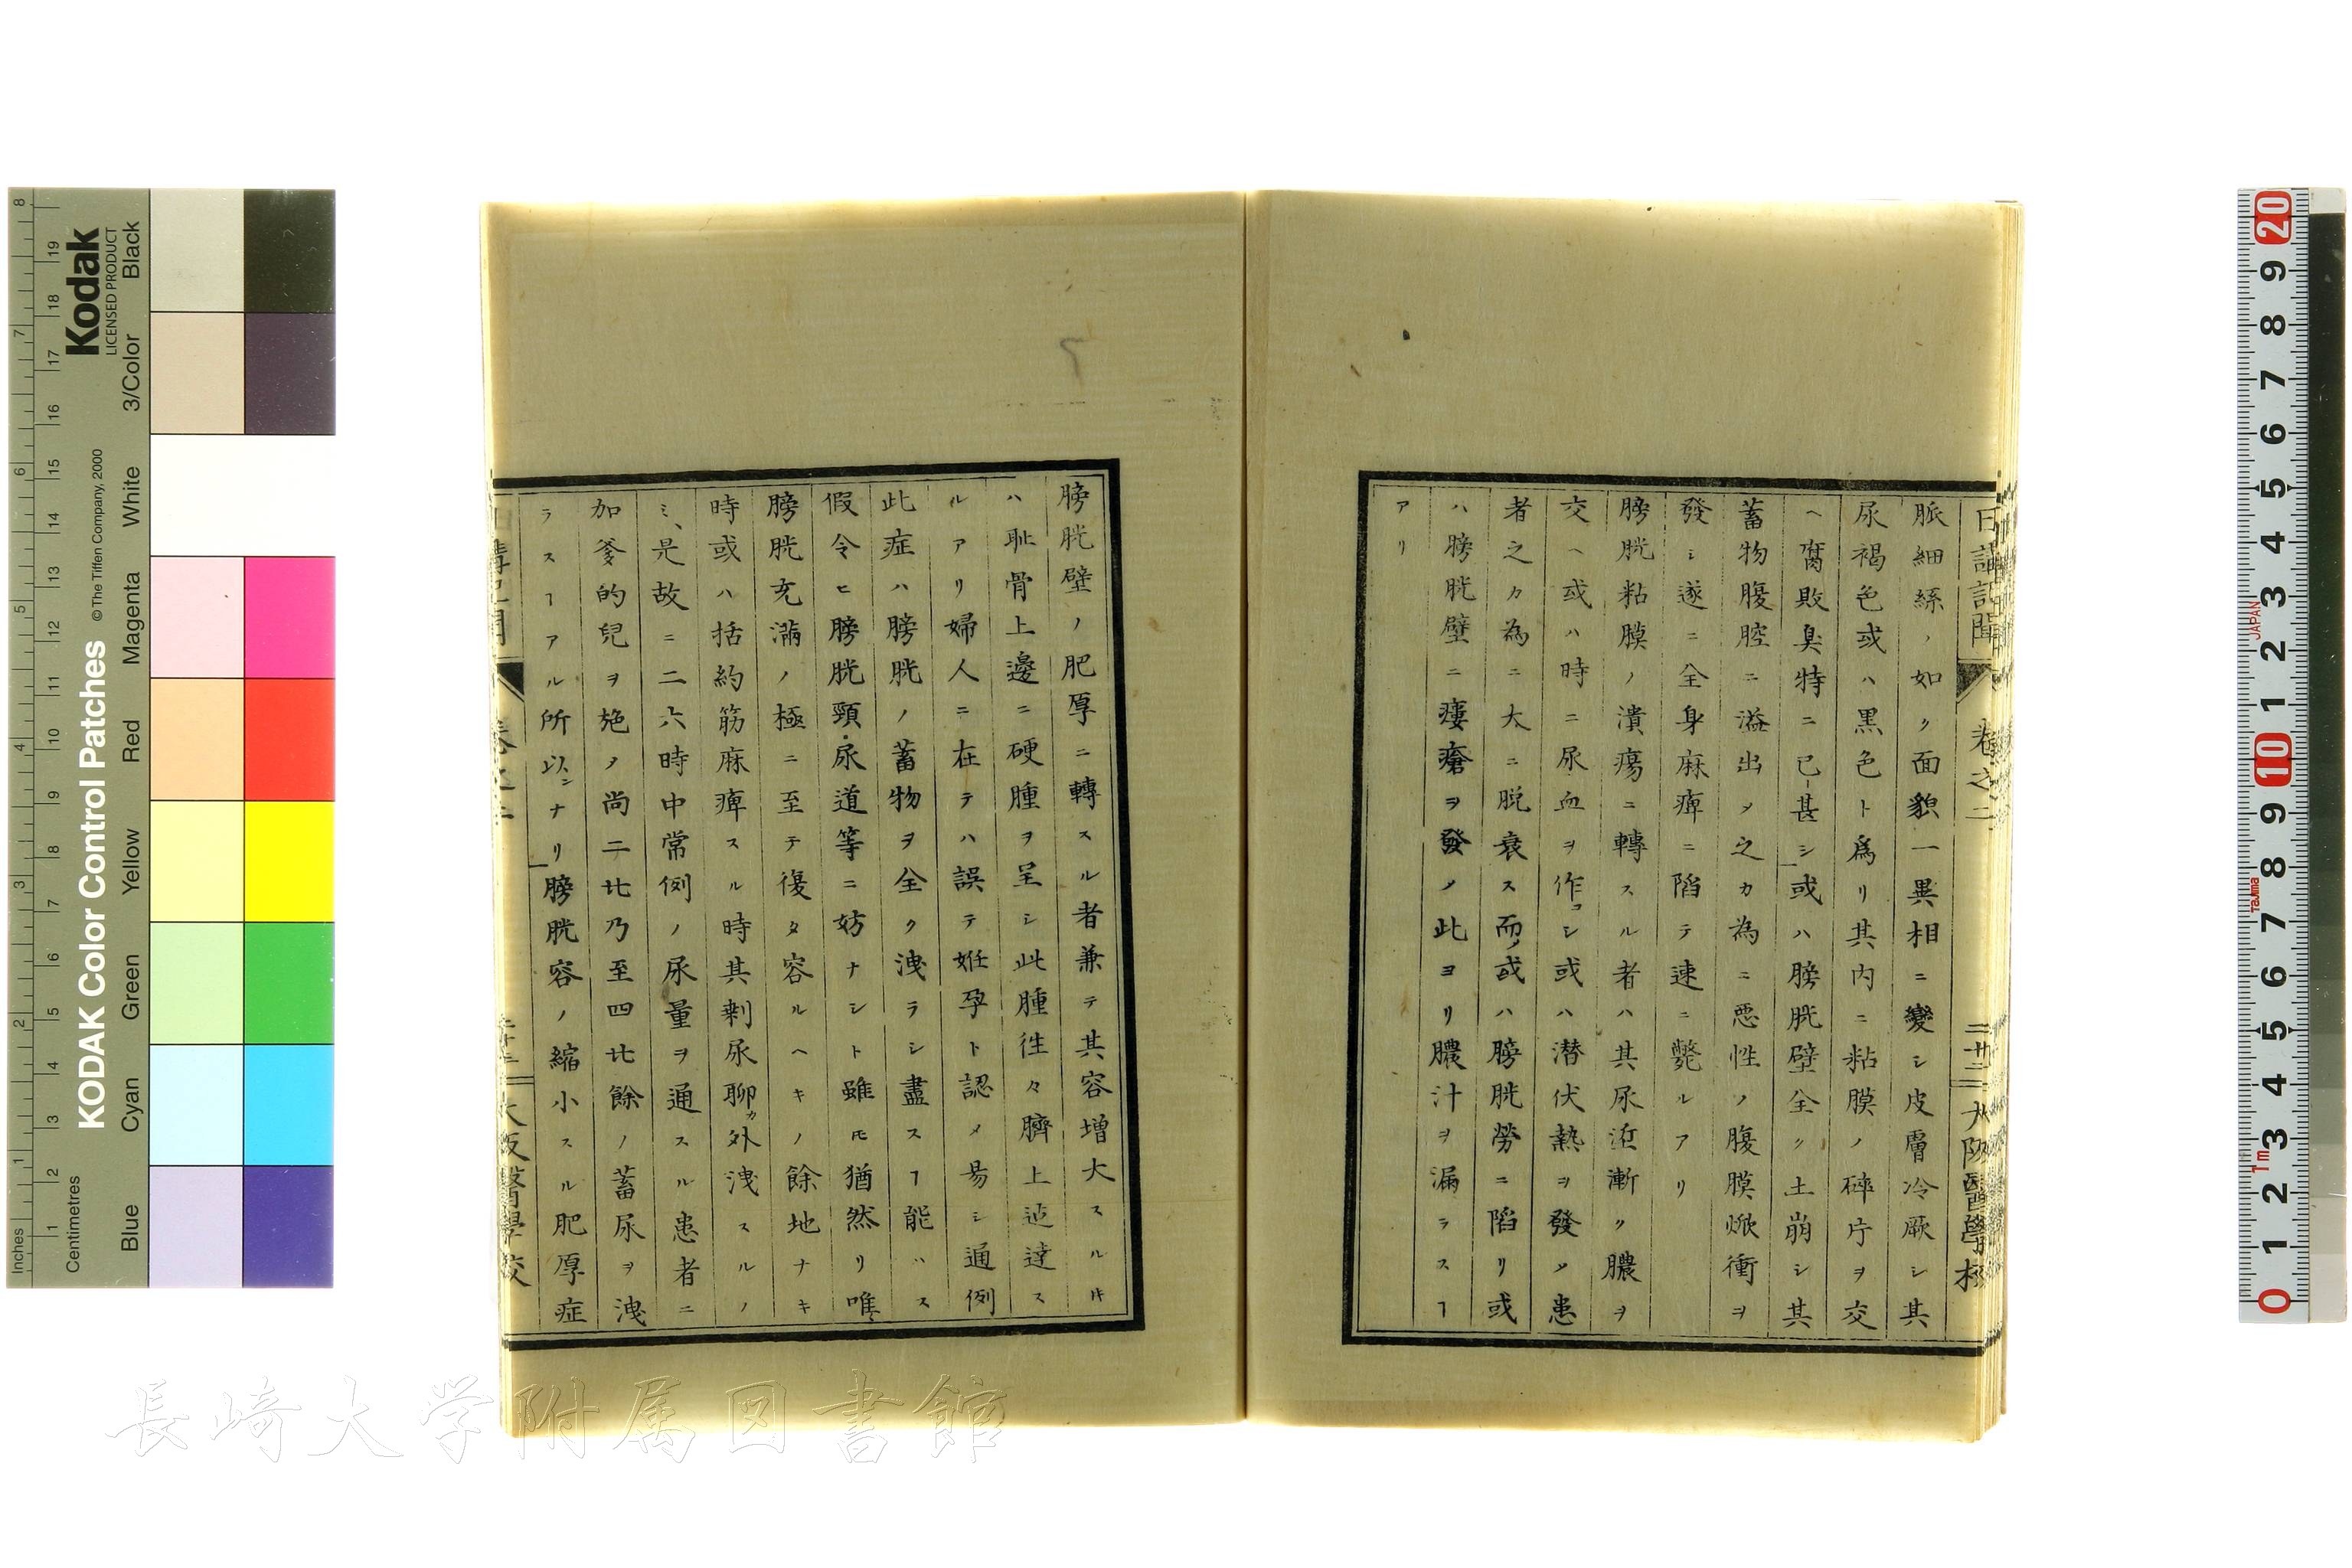 日講記聞
卷之二
二廿二
大阪醫學校
脈細絲ノ如ク面貌一異相ニ變シ皮膚冷厥シ其
尿褐色或ハ黒色ト爲リ其内ニ粘膜ノ碎片ヲ交
ヘ腐敗臭特ニ已甚シ或ハ膀胱壁全ク土崩シ其
蓄物腹腔ニ溢出メ之カ為ニ惡性ノ腹膜焮衝ヲ
發シ遂ニ全身麻痺ニ陷テ速ニ斃ルアリ
膀胱粘膜ノ潰瘍ニ轉スル者ハ其尿逐漸ク膿ヲ
交ヘ或ハ時ニ尿血ヲ作シ或ハ潜伏熱ヲ發メ患
者之カ為ニ大ニ脱衰ス而或ハ膀胱勞ニ陷リ或
ハ膀胱壁ニ瘻瘡ヲ發メ此ヨリ膿汁ヲ漏ラスヿ
アリ
膀胱壁ノ肥厚ニ轉スル者兼テ其容増大スル𪜈
ハ恥骨上邊ニ硬腫ヲ呈シ此腫徃々臍上迠達ス
ルアリ婦人ニ在テハ誤テ姙孕ト認メ昜シ通例
此症ハ膀胱ノ蓄物ヲ全ク洩ラシ盡スヿ能ハス
假令ヒ膀胱頸尿道等ニ妨ナシト雖𪜈猶然リ唯
膀胱充滿ノ極ニ至テ復タ容ルヘキノ餘地ナキ
時或ハ括約筋麻痺スル時其剰尿聊カ外洩スルノ
ミ是故ニ二六時中常例ノ尿量ヲ通スル患者ニ
加爹的兒ヲ施メ尚二廿乃至四廿餘ノ蓄尿ヲ洩
ラスヿアル所以ンナリ膀胱容ノ縮小スル肥厚症
大阪醫學校
7
Kodak
LICENSED PRODUCT
KODAK Color Control Patches
© The Tiffen Company, 2000
Inches
Centimetres
Blue
Cyan
Green
Yellow
Red
Magenta
White
3/Color
Black
1 2 3 4 5 6 7 8
1 2 3 4 5 6 7 8 9 10 11 12 13 14 15 16 17 18 19
20 9 8 7 6 5 4 3 2 1 10 9 8 7 6 5 4 3 2 1 0
JAPAN
Tajima
1m
長崎大学附属図書館